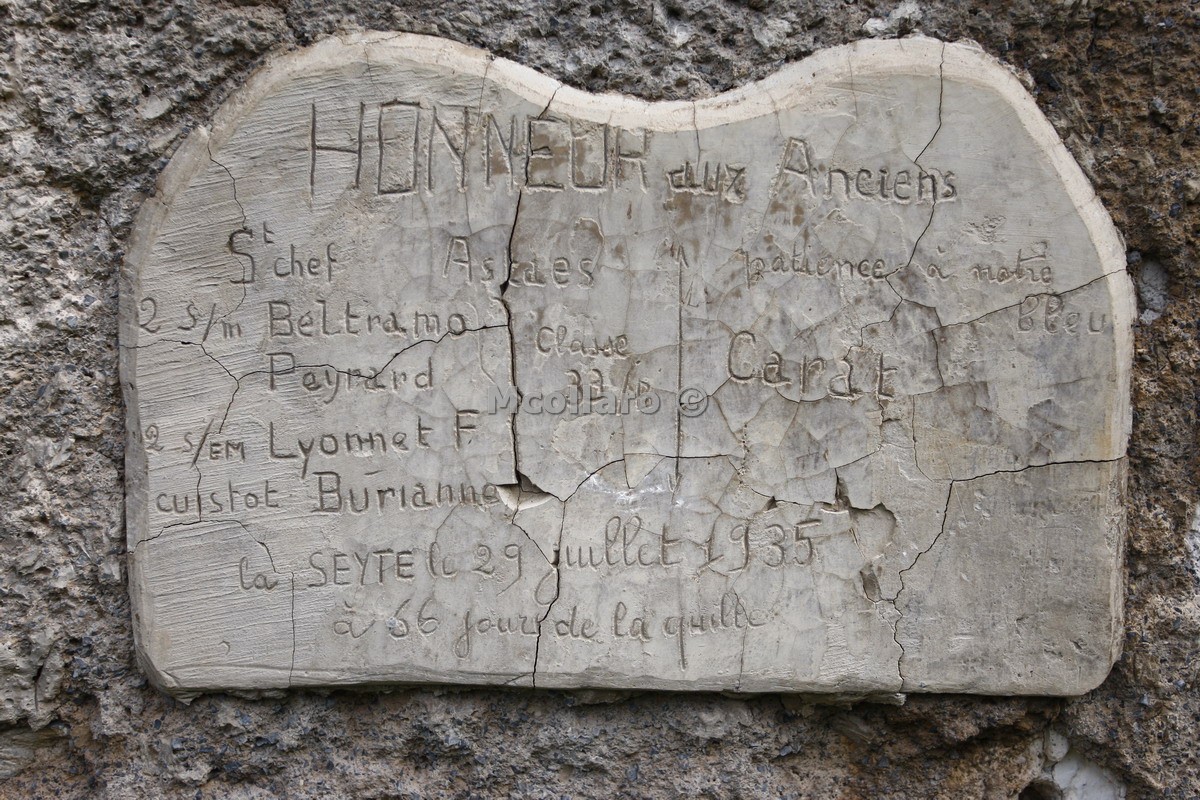 HONNEUR aux Anciens
St chef Astres
2 S/m Beltramo
Peyrard
Classe
33/B
2 S/EM Lyonnet F
cuistot Burianne
patience à notre
Bleu
Carat
la SEYTE le 29 juillet 1935
à 66 jour de la quille
Mcollaro ©